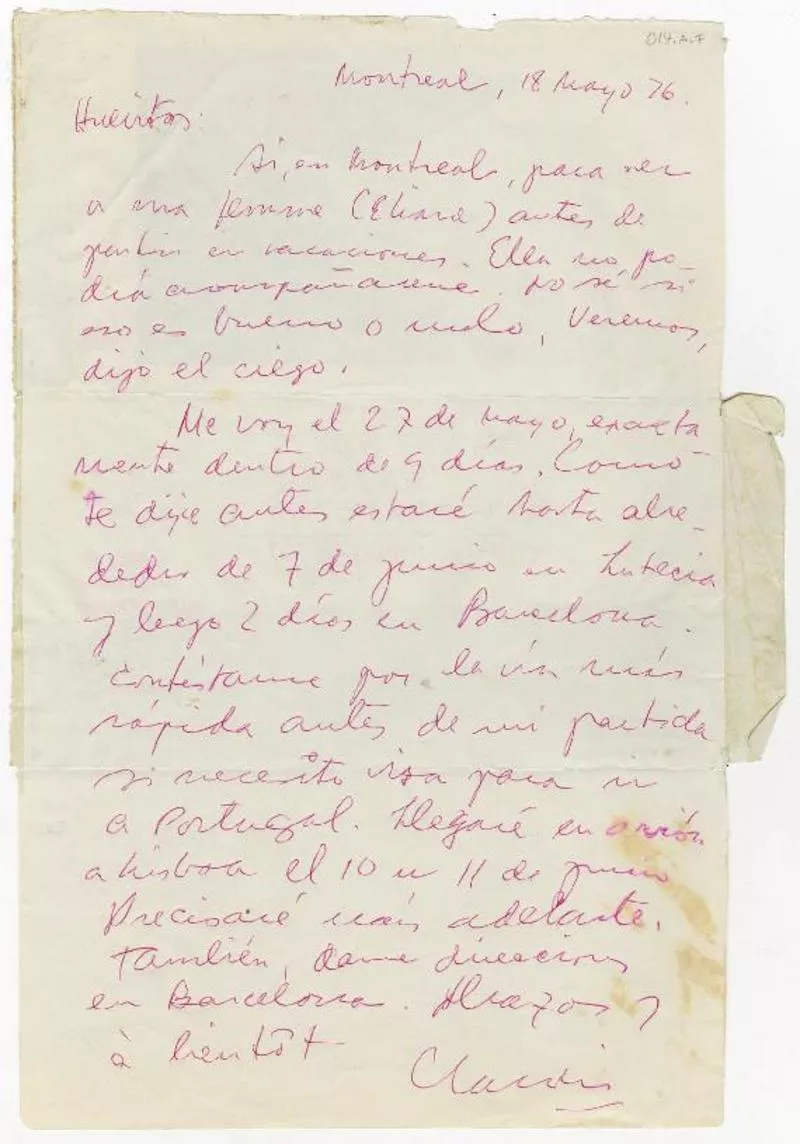 Montreal, 18 Mayo 76.
Si, en Montreal, para ver
a una femme (Eliane) antes de
partir en vacaciones. Ella no po-
drá acompañarme. No sé si
eso es bueno o malo, Veremos,
dijo el ciego.
Me voy el 27 de mayo, exacta
mente dentro de 9 días. Como
te dije antes estaré hasta alre-
dedor de 7 de junio en Lutecia
y luego 2 días en Barcelona.
Contéstame por la vía más
rápida antes de mi partida
si necesito visa para ir
a Portugal. Llegaré en avión
a Lisboa el 10 u 11 de junio
Precisaré más adelante.
También, dame direcciones
en Barcelona. Abrazos y
à bientôt